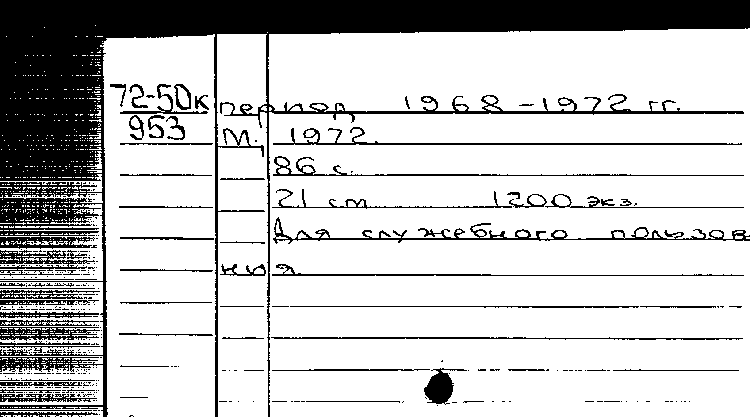 72-50к период 1968-1972 гг.
953 М., 1972.
86 с.
21 см 1200 экз.
Для служебного пользова
ния.